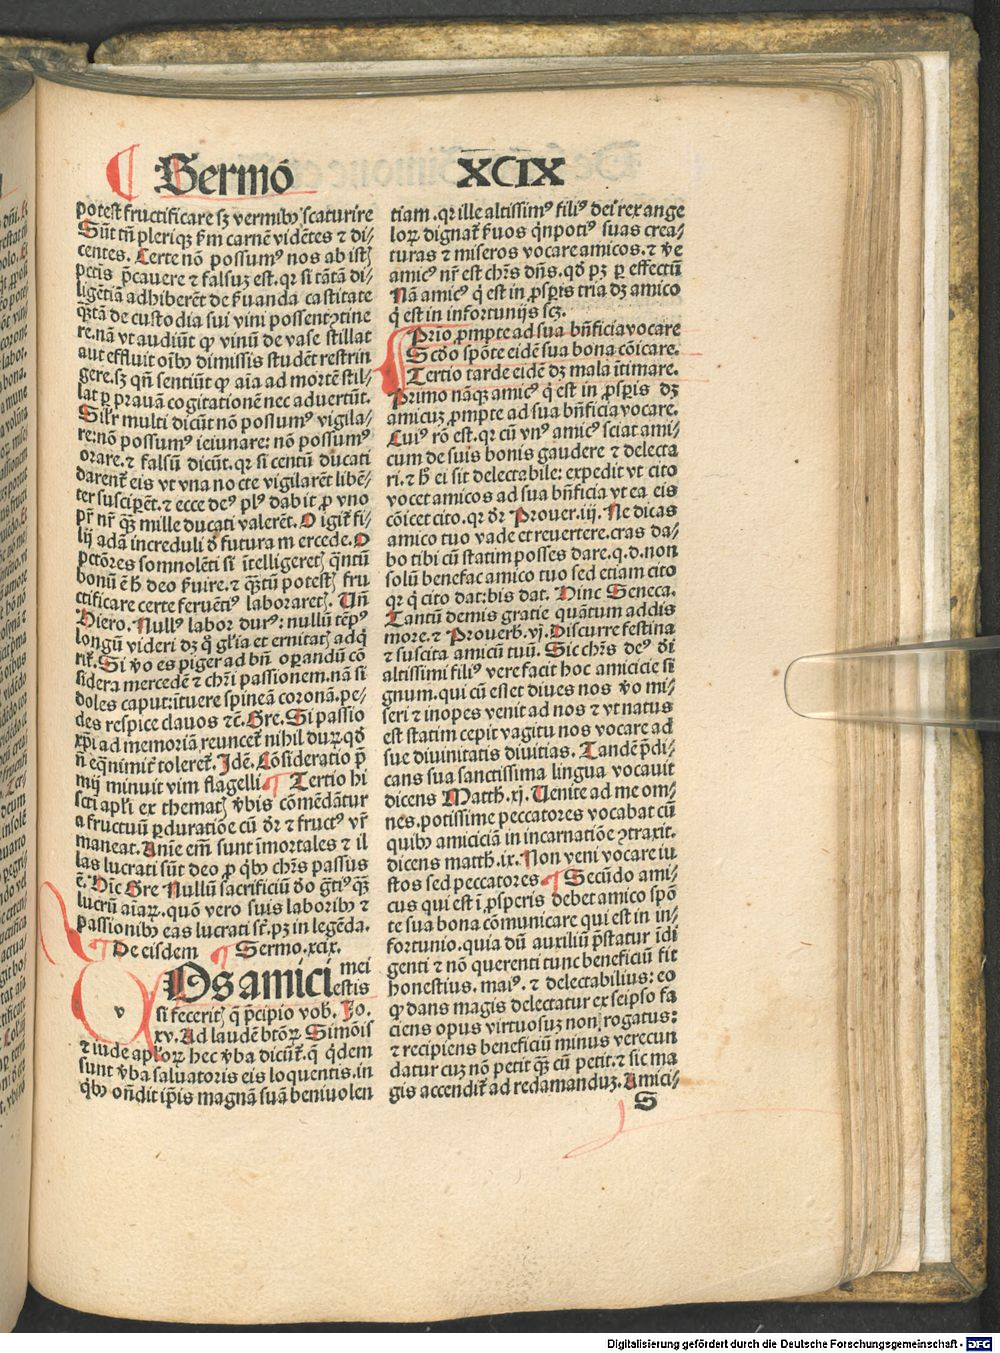 Sermo XCIX
potest fructificare sꝫ vermibꝰ scaturire
Sūt tn̄ pleriqꝫ ẜm carnē vidētes ⁊ di/
centes. Certe nō possumꝰ nos ab istꝭ
pctis p̄cauere ⁊ falsuꝫ est. qꝛ si tātā di/
ligētiā adhiberēt de ẜuanda castitate
qꝫtā de custodia sui vini possent ꝯtine
re. nā vt audiūt ꝙ vinū de vase stillat
aut effluit oībꝰ dimissis studēt restrin
gere. sꝫ qn̄ sentiūt ꝙ aīa ad mortē stil/
lat ꝑ prauā cogitationē nec aduertūt.
Silr̄ multi dicūt nō possumꝰ vigila/
re: nō possumꝰ ieiunare: nō possumꝰ
orare. ⁊ falsū dicūt. qꝛ si centū ducati
darent᷑ eis vt vna nocte vigilarēt libē/
ter susciperēt. ⁊ ecce deꝰ plꝰ dabit ꝓ vno
pr̄ nr̄ qꝫ mille ducati valerēt. O igit᷑ fi/
lij adā increduli ð futura mercede. O
pctōres somnolēti si ītelligeretꝭ qn̄tū
bonū ē h̄ deo ẜuire. ⁊ qꝫtū potestꝭ fru
ctificare certe feruētiꝰ laboraretꝭ. Un̄
Hiero. Nullꝰ labor durꝰ: nullū tēpꝰ
longū videri dꝫ qͦ gl̄ia et ernitatꝭ adq̄
rit᷑. Si v̄o es piger ad bn̄ operandū cō
sidera mercedē ⁊ chr̄i passionem. nā si
doles caput: ītuere spineā coronā. pe/
des respice clauos ⁊c̄. Gre. Si passio
xp̄i ad memoriā reuncet᷑ nihil duꝝ qð
n̄ eqͣnimit᷑ toleret᷑. Idē. Cōsideratio p̄
mij minuit vim flagelli ¶ Tertio hi
scti apl̄i ex thematꝭ v̄bis cōmēdātur
a fructuū ꝑduratiōe cū dr̄ ⁊ fructꝰ vr̄
maneat. Anie em̄ sunt īmortales ⁊ il
las lucrati sūt deo ꝓ qͥbꝰ chr̄s passus
ē. Hic Gre Nullū sacrificiū ðo gͣtiꝰ qꝫ
lucrū aīaꝝ. quō vero suis laboribꝰ ⁊
passionibꝰ eas lucrati st̄. pꝫ in legēda.
¶ De eisdem ¶ Sermo. xcix.
v Os amici mei
estis
si feceritꝭ q̄ p̄cipio vob. Jo.
xv. Ad laudē btōꝝ Simōis
⁊ iude apl̄oꝝ hec v̄ba dicūt᷑. q̄ qͥdem
sunt v̄ba saluatoris eis loquentis. in
qͥbꝰ on̄dit ip̄is magnā suā beniuolen
tiam. qꝛ ille altissimꝰ filiꝰ dei rex ange
loꝝ dignat᷑ ẜuos qͥnpotiꝰ suas crea/
turas ⁊ miseros vocare amicos. ⁊ v̄e
amicꝰ nr̄ est chr̄s dn̄s. qð pꝫ ꝑ effectū
Nā amicꝰ qͥ est in ꝓsperis tria dꝫ amico
qͥ est in infortunijs scꝫ.
Prīo ꝓmpte ad sua bn̄ficia vocare
Scðo spōte eidē sua bona cōicare.
Tertio tarde eidē dꝫ mala ītimare.
Primo nāqꝫ amicꝰ qͥ est in ꝓsperis dꝫ
amicuꝫ ꝓmpte ad sua bn̄ficia vocare.
Cuiꝰ rō est. qꝛ cū vnꝰ amicꝰ sciat ami/
cum de suis bonis gaudere ⁊ delecta
ri. ⁊ h̄ ei sit delectabile: expedit vt cito
vocet amicos ad sua bn̄ficia vt ea eis
cōicet cito. qꝛ dr̄ Prouer. iij. Ne dicas
amico tuo vade et reuertere. cras da/
bo tibi cū statim posses dare. q. d. non
solū benefac amico tuo sed etiam cito
qꝛ qͥ cito dat: bis dat. Hinc Seneca.
Tantū demis gratie quātum addis
more. ⁊ Prouerb. vj. Discurre festina
⁊ suscita amicū tuū. Sic chr̄s deꝰ ði
altissimi filiꝰ vere facit hoc amicicie si
gnum. qui cū esset diues nos v̄o mi/
seri ⁊ inopes venit ad nos ⁊ vt natus
est statim cepit vagitu nos vocare ad
sue diuinitatis diuitias. Tandē p̄di/
cans sua sanctissima lingua vocauit
dicens Matth. xj. Uenite ad me om/
nes. potissime peccatores vocabat cū
quibꝰ amiciciā in incarnatiōe ꝯtraxit.
dicens matth. ix. Non veni vocare iu
stos sed peccatores. ¶ Secūdo ami/
cus qui est ī ꝓsperis debet amico spō
te sua bona cōmunicare qui est in in/
fortunio. quia dū auxiliū p̄statur īdi
genti ⁊ nō querenti tunc beneficiū fit
honestius. maiꝰ. ⁊ delectabilius: eo
ꝙ dans magis delectatur ex seipso fa
ciens opus virtuosuꝫ non rogatus:
⁊ recipiens beneficiū minus verecun
datur cuꝫ nō petit qꝫ cū petit. ⁊ sic ma
gis accendit᷑ ad redamanduꝫ. Amici/
S
Digitalisierung gefördert durch die Deutsche Forschungsgemeinschaft - DFG